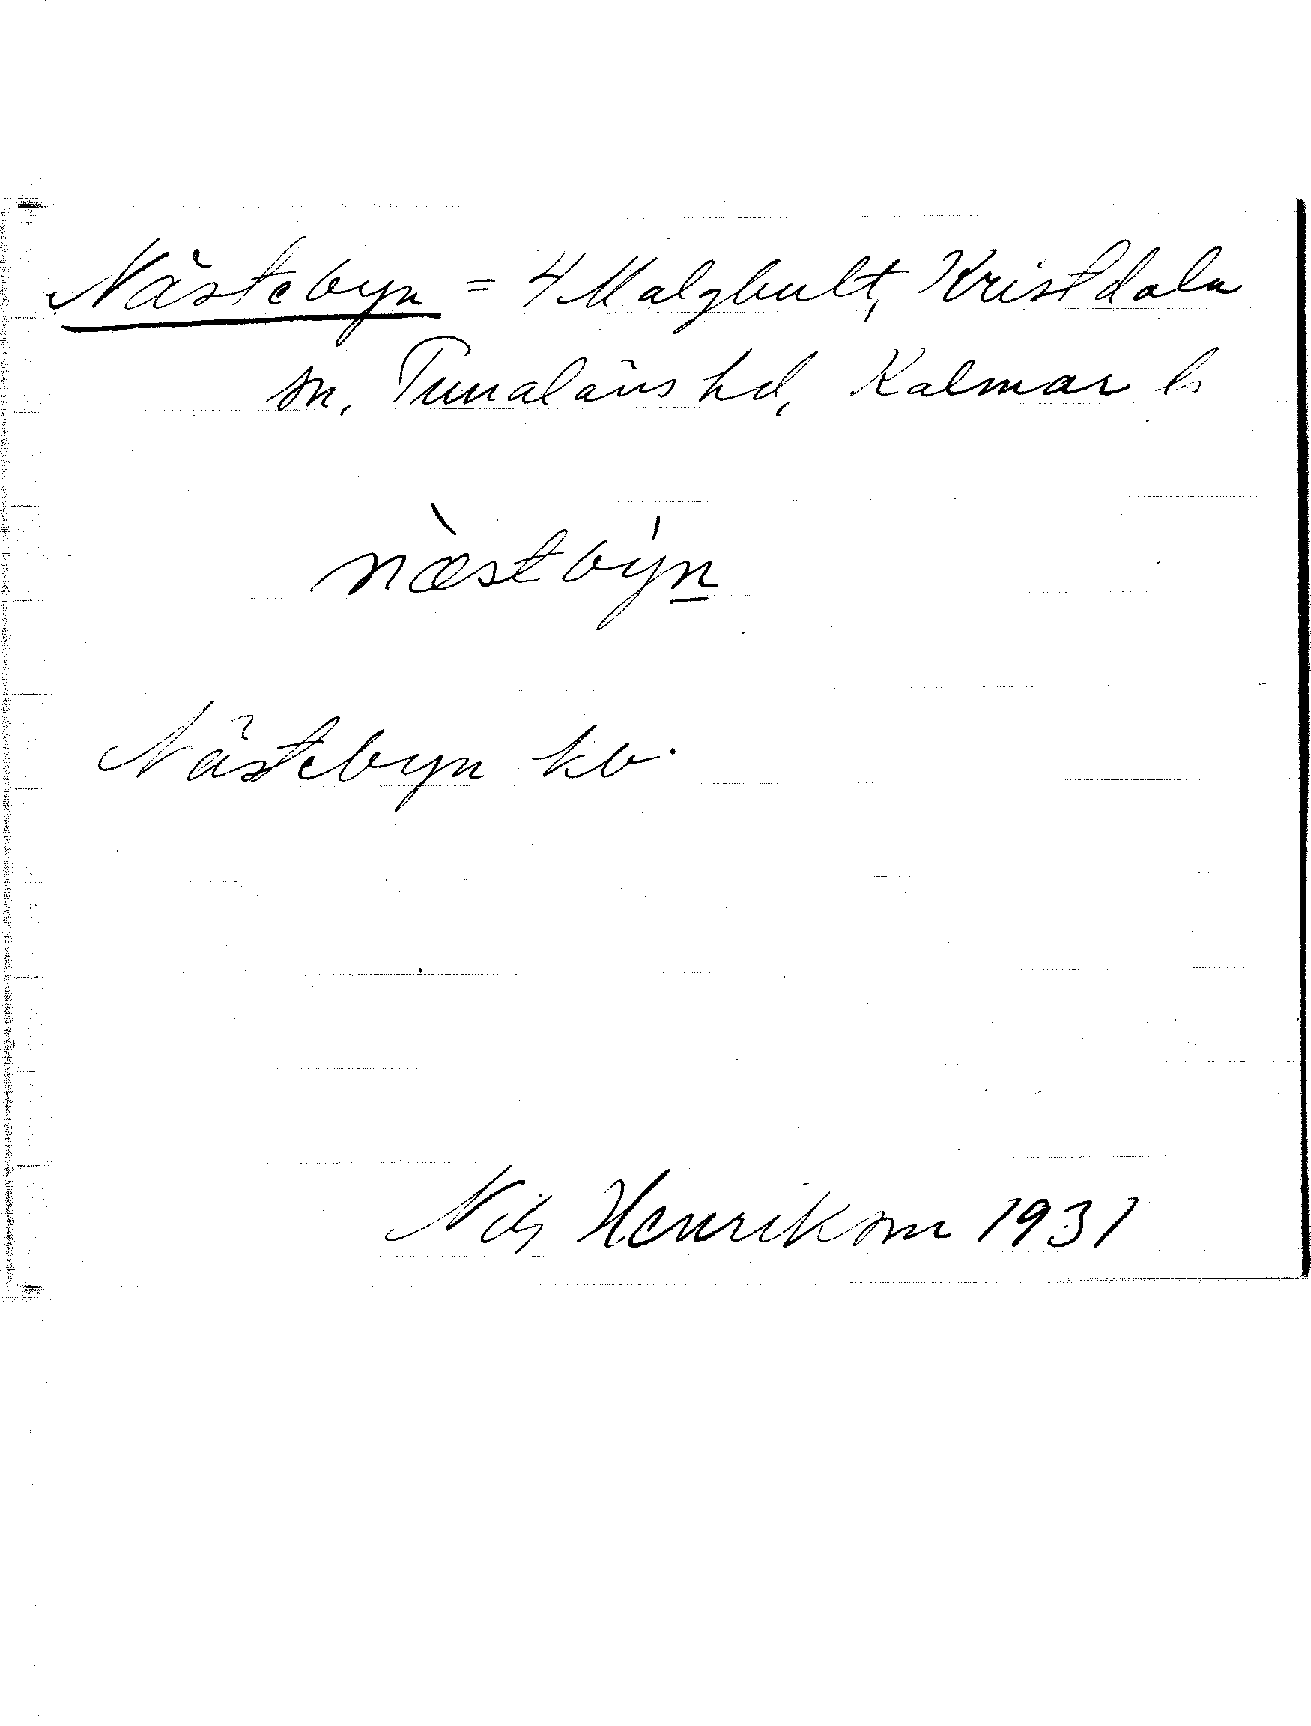 Nästebyn = 4 Malghult, Kristdala
sn, Tunaläns hd, Kalmar l.
næ̀stbýn
Nästebyn kb.
Nils Henrikson 1931